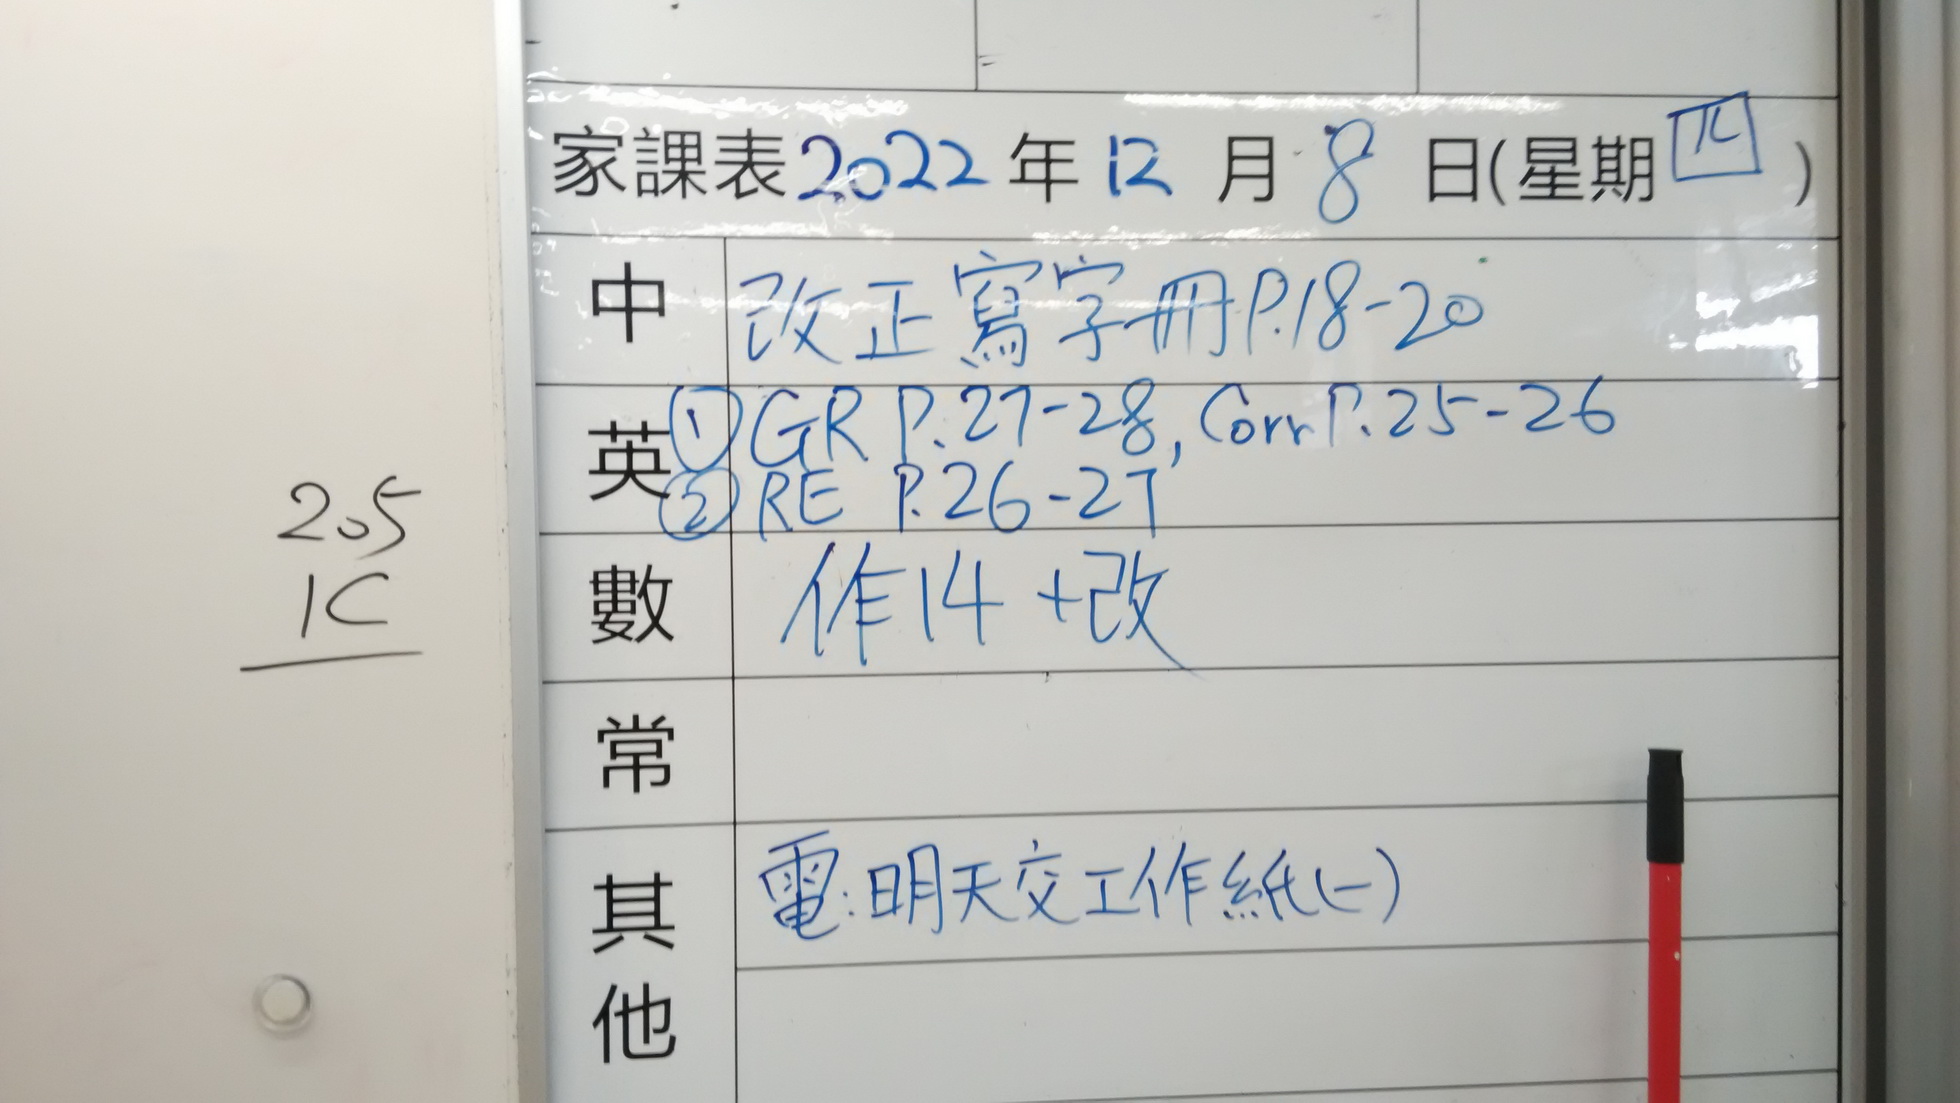 家課表2022年12月8日(星期四)
中 改正寫字冊P.18-20
英 ①GR P.27-28, Corr P.25-26
②RE P.26-27
205
1C
數 作14 +改
常
其他
電:明天交工作紙(一)